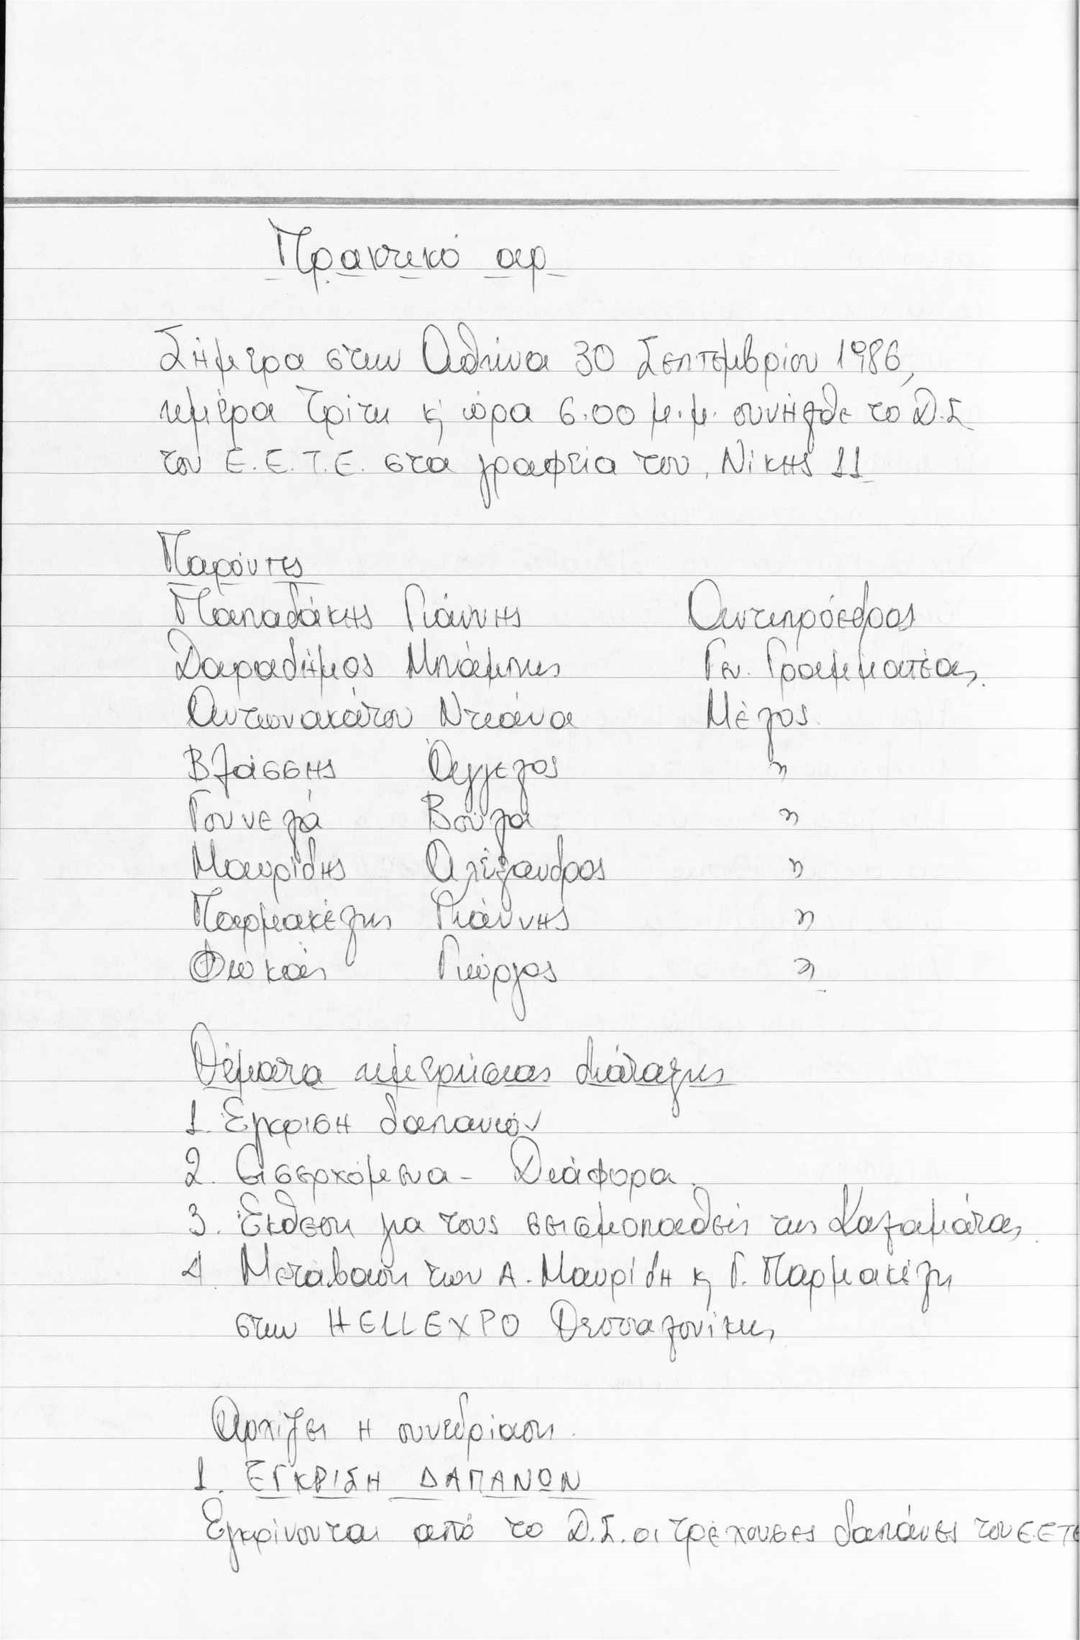 Πρακτικό αρ
Σήμερα στην Αθήνα 30 Σεπτεμβρίου 1986,
ημέρα Τρίτη κ ώρα 6.00 μ.μ. συνήλθε το Δ.Σ
του Ε.Ε.Τ.Ε. στα γραφεία του, Νίκης 11
Παρόντες
Παπαδάκης Γιάννης Αντιπρόεδρος
Δαραδήμος Μπάμπης Γεν. Γραμματέας
Αντωνακάτου Ντιάνα Μέλος
Βλάσσης Άγγελος "
Γουνελά Βούλα "
Μαυρίδης Αλέξανδρος "
Παρμακέλης Γιάννης "
Φωκάς Γιώργος "
Θέματα ημερήσιας διάταξης
1. Έγκριση δαπανών
2. Εισερχόμενα - Διάφορα.
3. Έκθεση για τους σεισμοπαθείς της Καλαμάτας
4 Μετάβαση των Α. Μαυρίδη κ Γ. Παρμακέλη
στην HELLEXPO Θεσσαλονίκης
Αρχίζει η συνεδρίαση.
1. ΕΓΚΡΙΣΗ ΔΑΠΑΝΩΝ
Εγκρίνονται από το Δ.Σ. οι τρέχουσες δαπάνες του ΕΕΤΕ